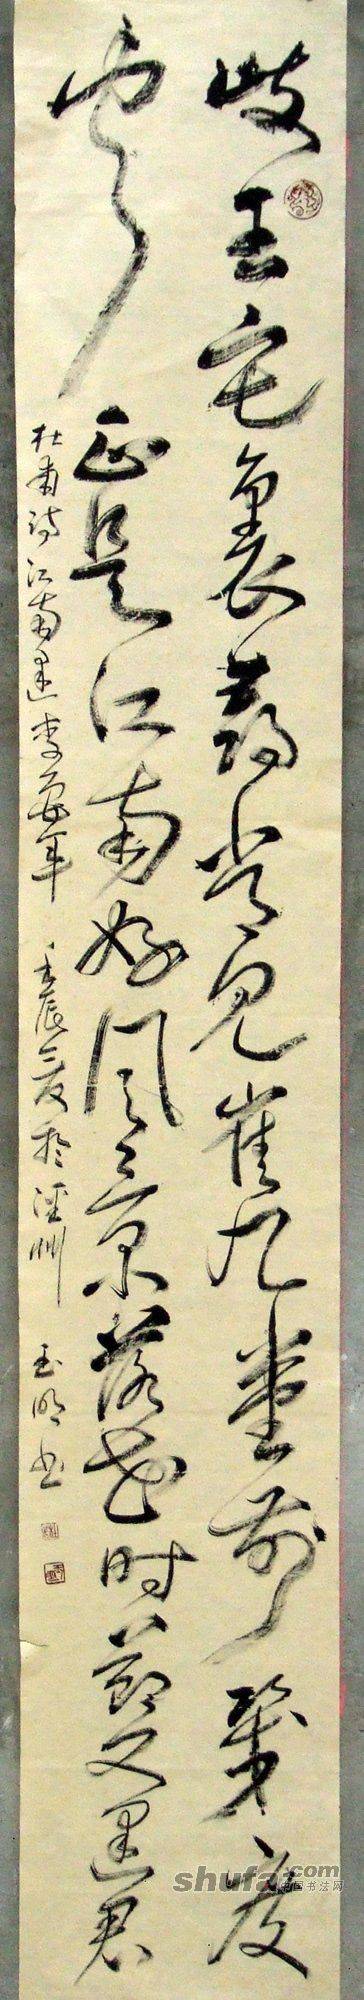 岐王宅裏尋常見崔九堂前幾度
聞正是江南好風景落花时節又逢君
杜甫诗江南逢李龜年 壬辰夏於泾州 玉明书
shufa.com
中国书法网